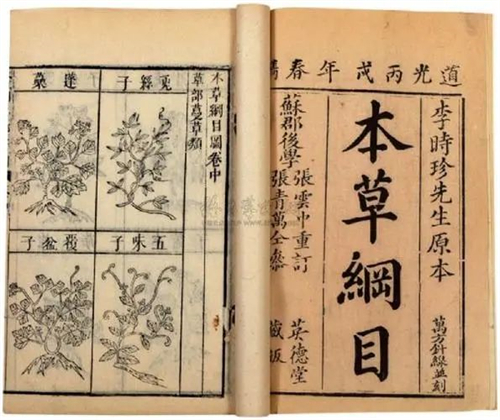 道光丙戌年春鐫
李時珍先生原本
萬方針線並刻
本草綱目
蘇郡後學
張雲中重訂
張青萬仝參
英德堂
藏版
本草綱目圖卷中
草部蔓草類
兔絲子
五味子
覆盆子